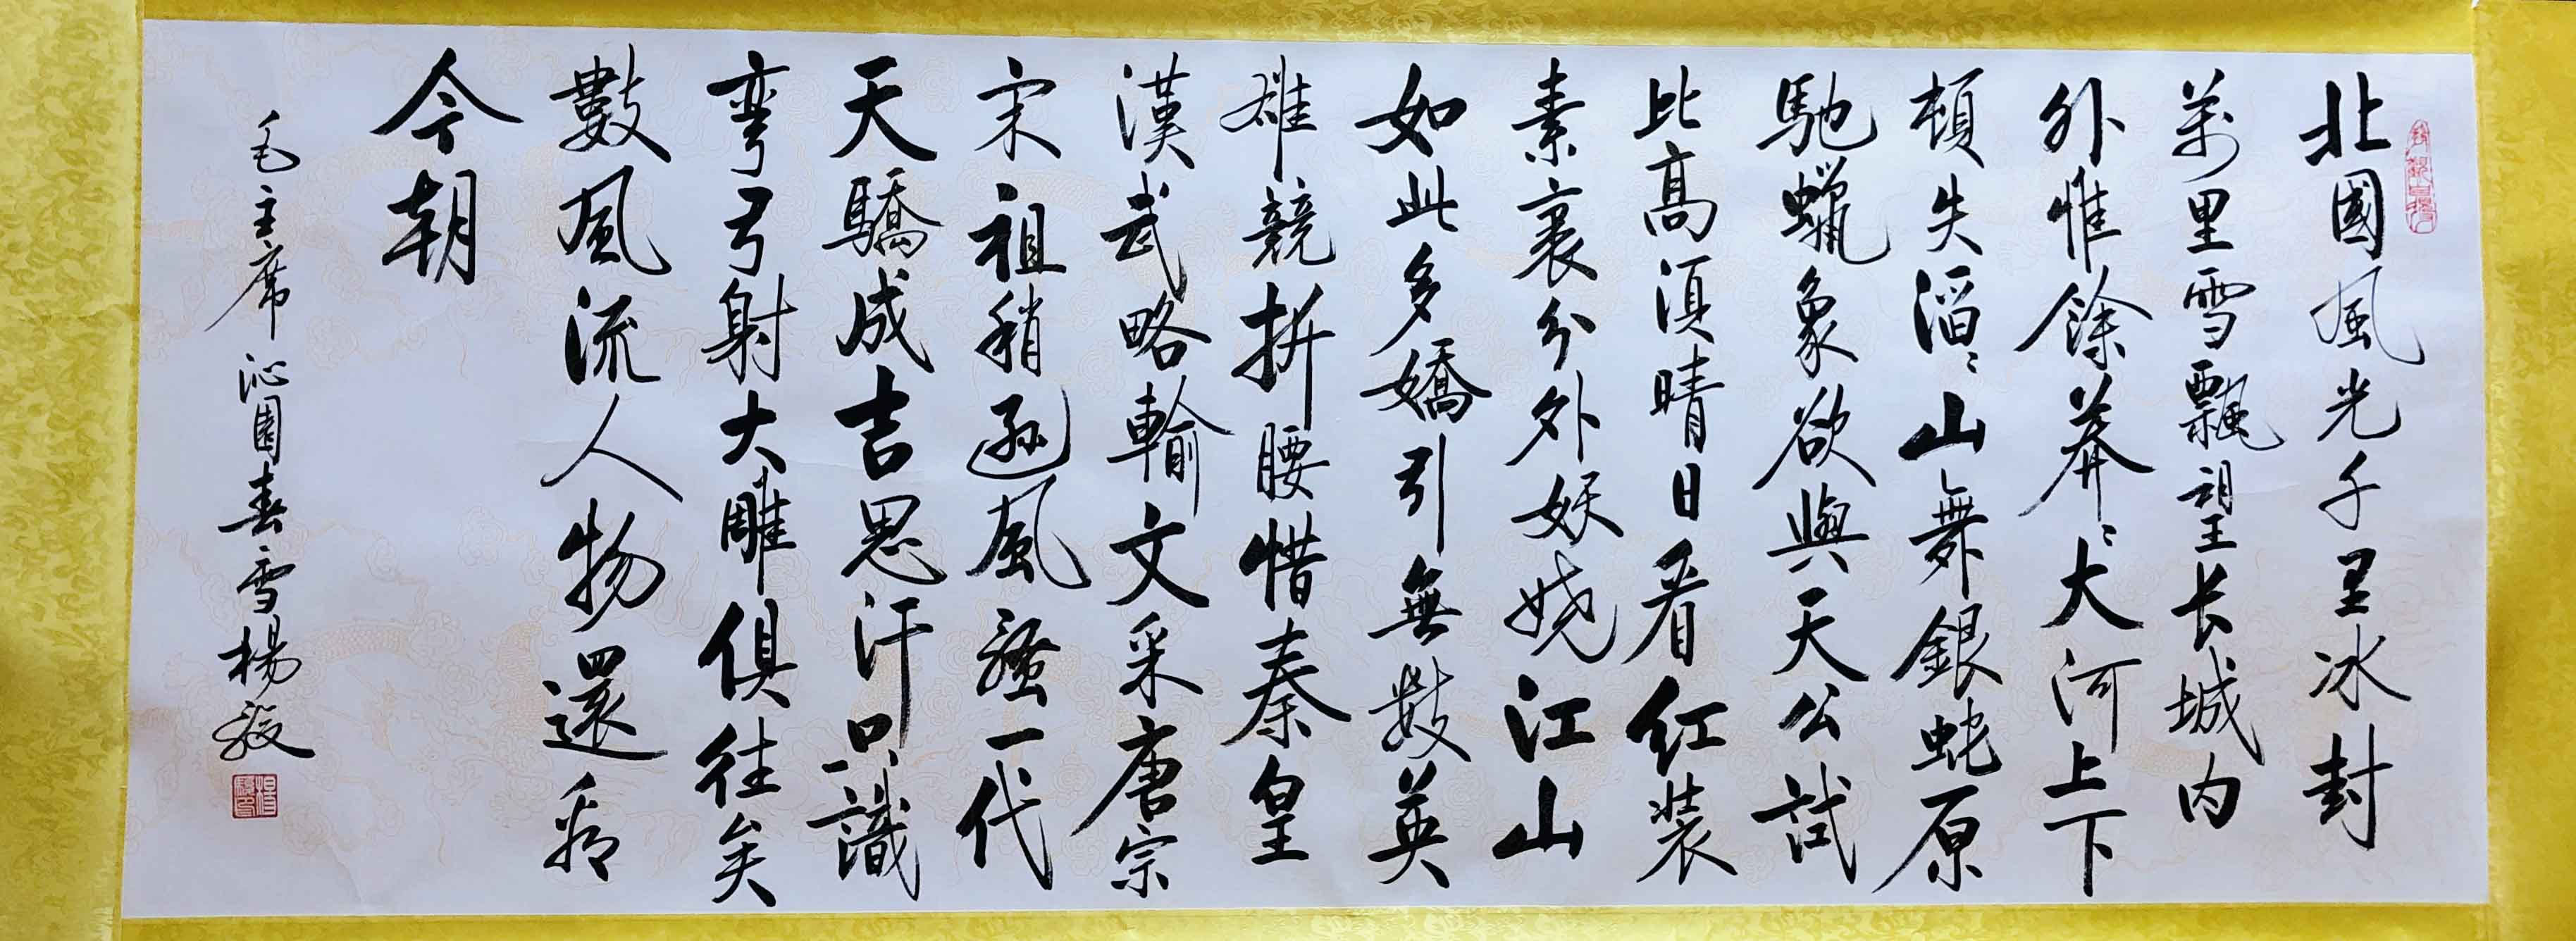 北國風光千里冰封
萬里雪飄望长城内
外惟餘莽〻大河上下
頓失滔〻山舞銀蛇原
馳蠟象欲與天公試
比高須晴日看红装
素裹分外妖娆江山
如此多嬌引無數英
雄競折腰惜秦皇
漢武略輸文采唐宗
宋祖稍遜風騷一代
天驕成吉思汗只識
彎弓射大雕俱往矣
數風流人物還看
今朝
毛主席沁園春雪楊